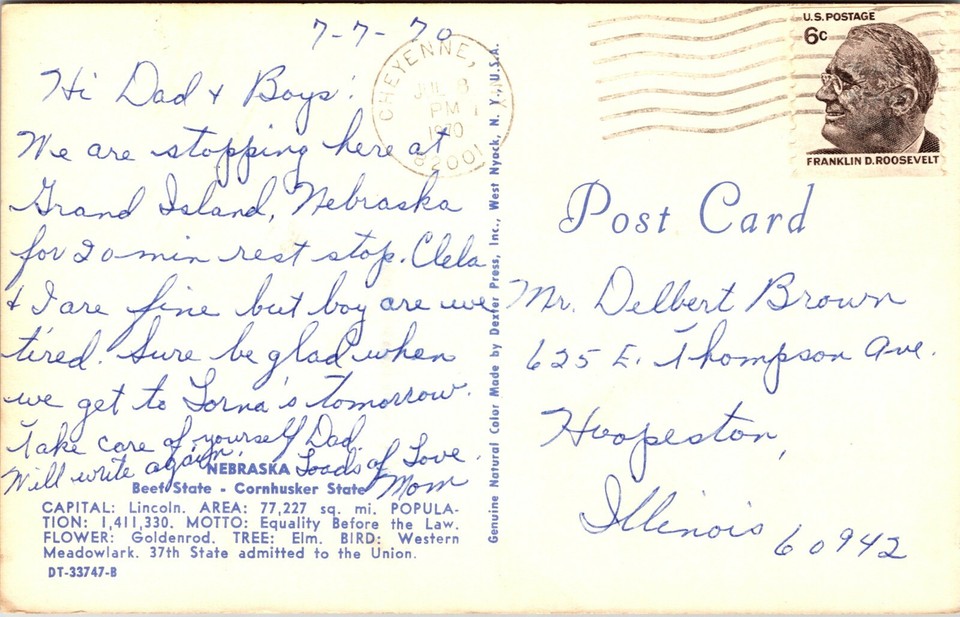 7-7-70
Hi Dad & Boys:
We are stopping here at
Grand Island, Nebraska
for 20 min rest stop. Clela
& I are fine but boy are we
tired. Sure be glad when
we get to Lorna's tomorrow.
Take care of yourself Dad.
Will write again. Loads of Love.
Mom
NEBRASKA
Beef State - Cornhusker State
CAPITAL: Lincoln. AREA: 77,227 sq. mi. POPULA-
TION: 1,411,330. MOTTO: Equality Before the Law.
FLOWER: Goldenrod. TREE: Elm. BIRD: Western
Meadowlark. 37th State admitted to the Union.
DT-33747-B
Genuine Natural Color Made by Dexter Press, Inc., West Nyack, N. Y., U.S.A.
CHEYENNE,
JUL 8
PM
1970
82001
U.S. POSTAGE
6c
FRANKLIN D. ROOSEVELT
Post Card
Mr. Delbert Brown
625 E. Thompson Ave.
Hoopeston,
Illinois 60942